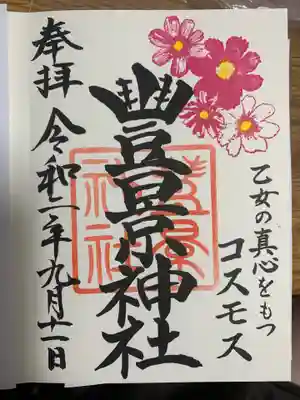 乙女の真心をもつ
コスモス
豐景神社
奉拝 令和二年九月十一日